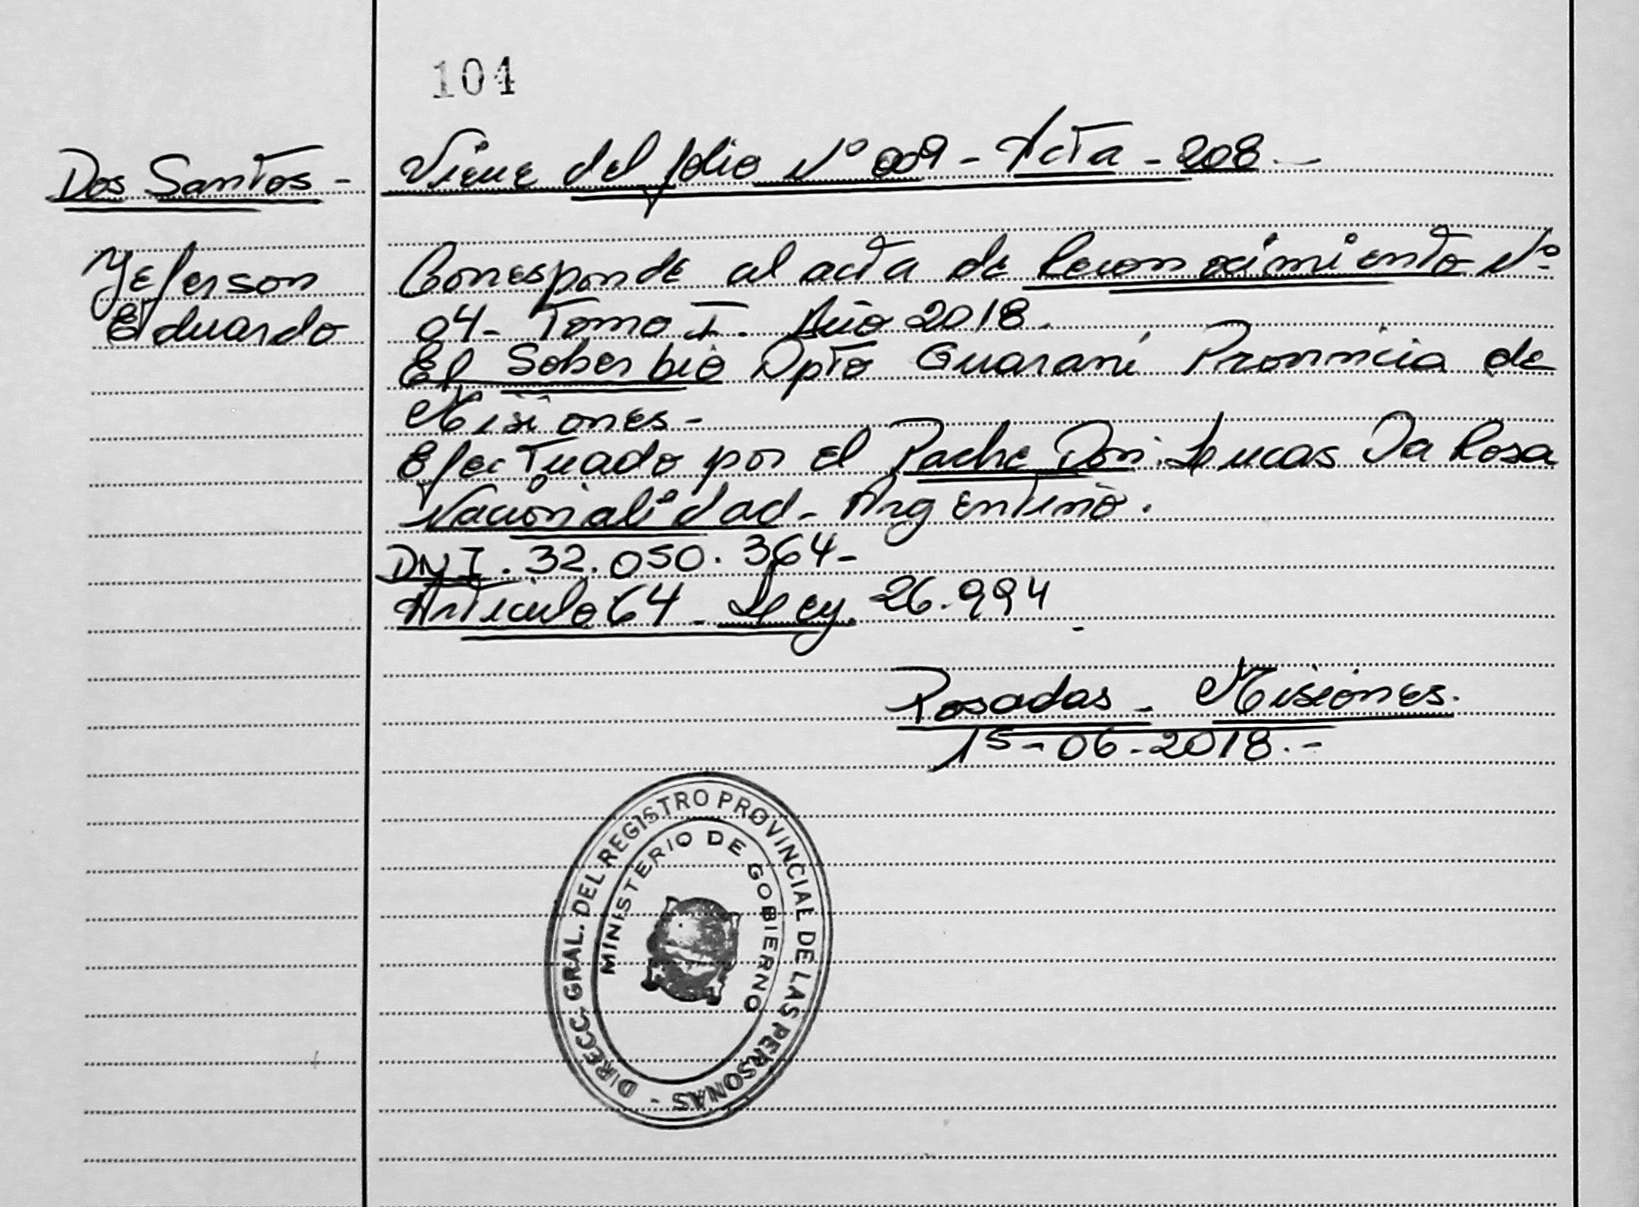 104
Dos Santos -
Yeferson
Eduardo
Viene del folio Nº 009 - Acta - 208 -
Corresponde al acta de Reconocimiento Nº
04 - Tomo I. Año 2018.
El Soberbio Dpto Guaraní Provincia de
Misiones -
Efectuado por el Padre Don: Lucas Da Rosa
Nacionalidad - Argentino.
DNI. 32.050.364 -
Articulo 64 - Ley. 26.994
Posadas - Misiones.
15-06-2018.-
DIRECC. GRAL. DEL REGISTRO PROVINCIAL DE LAS PERSONAS -
MINISTERIO DE GOBIERNO